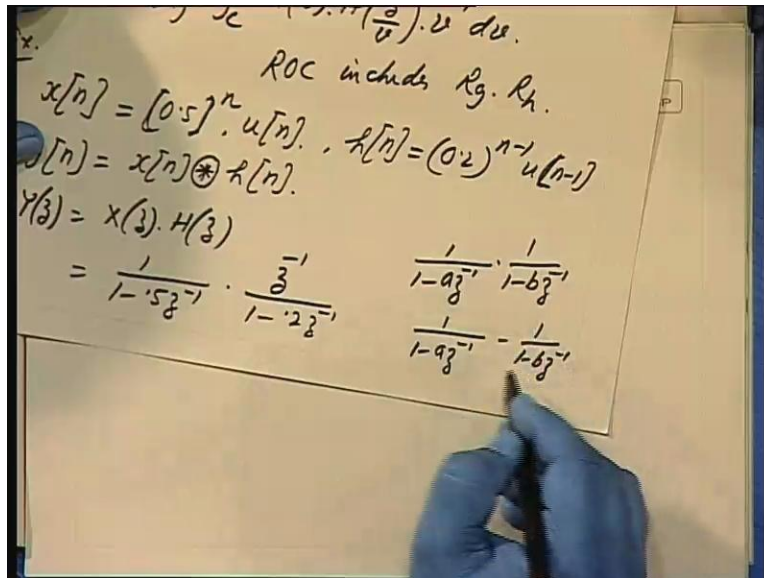 H(z/v). v dv.
Ex.
ROC includes Rg. Rh.
x[n] = [0.5]^n. u[n]. , h[n] = (0.2)^{n-1} u[n-1]
y[n] = x[n] ⊛ h[n].
Y(z) = X(z). H(z)
= 1/(1-.5z^{-1}) . z^{-1}/(1-.2z^{-1})
1/(1-az^{-1}) . 1/(1-bz^{-1})
1/(1-az^{-1}) - 1/(1-bz^{-1})